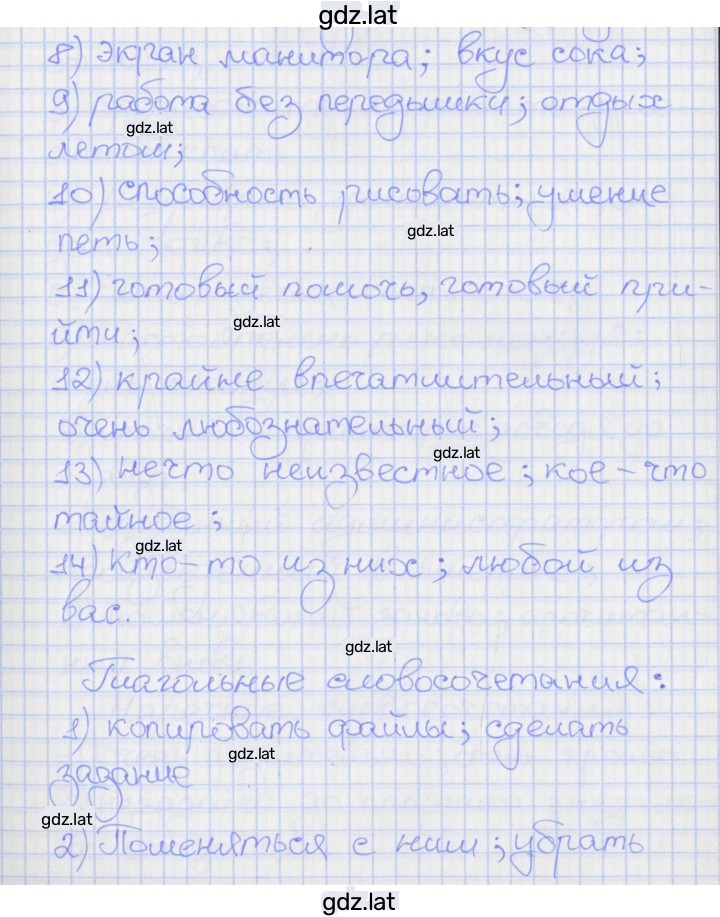 gdz.lat
8) экран манитора; вкус сока;
9) работа без передышки; отдых
gdz.lat
летом;
10) способность рисовать; умение
gdz.lat
петь;
11) готовый помочь, готовый при-
gdz.lat
йти;
12) крайне впечатлительный;
очень любознательный;
gdz.lat
13) нечто неизвестное; кое-что
тайное;
gdz.lat
14) кто-то из них; любой из
вас.
gdz.lat
Глагольные словосочетания:
1) копировать файлы; сделать
gdz.lat
задание
gdz.lat
2) Поменяться с ним; убрать
gdz.lat